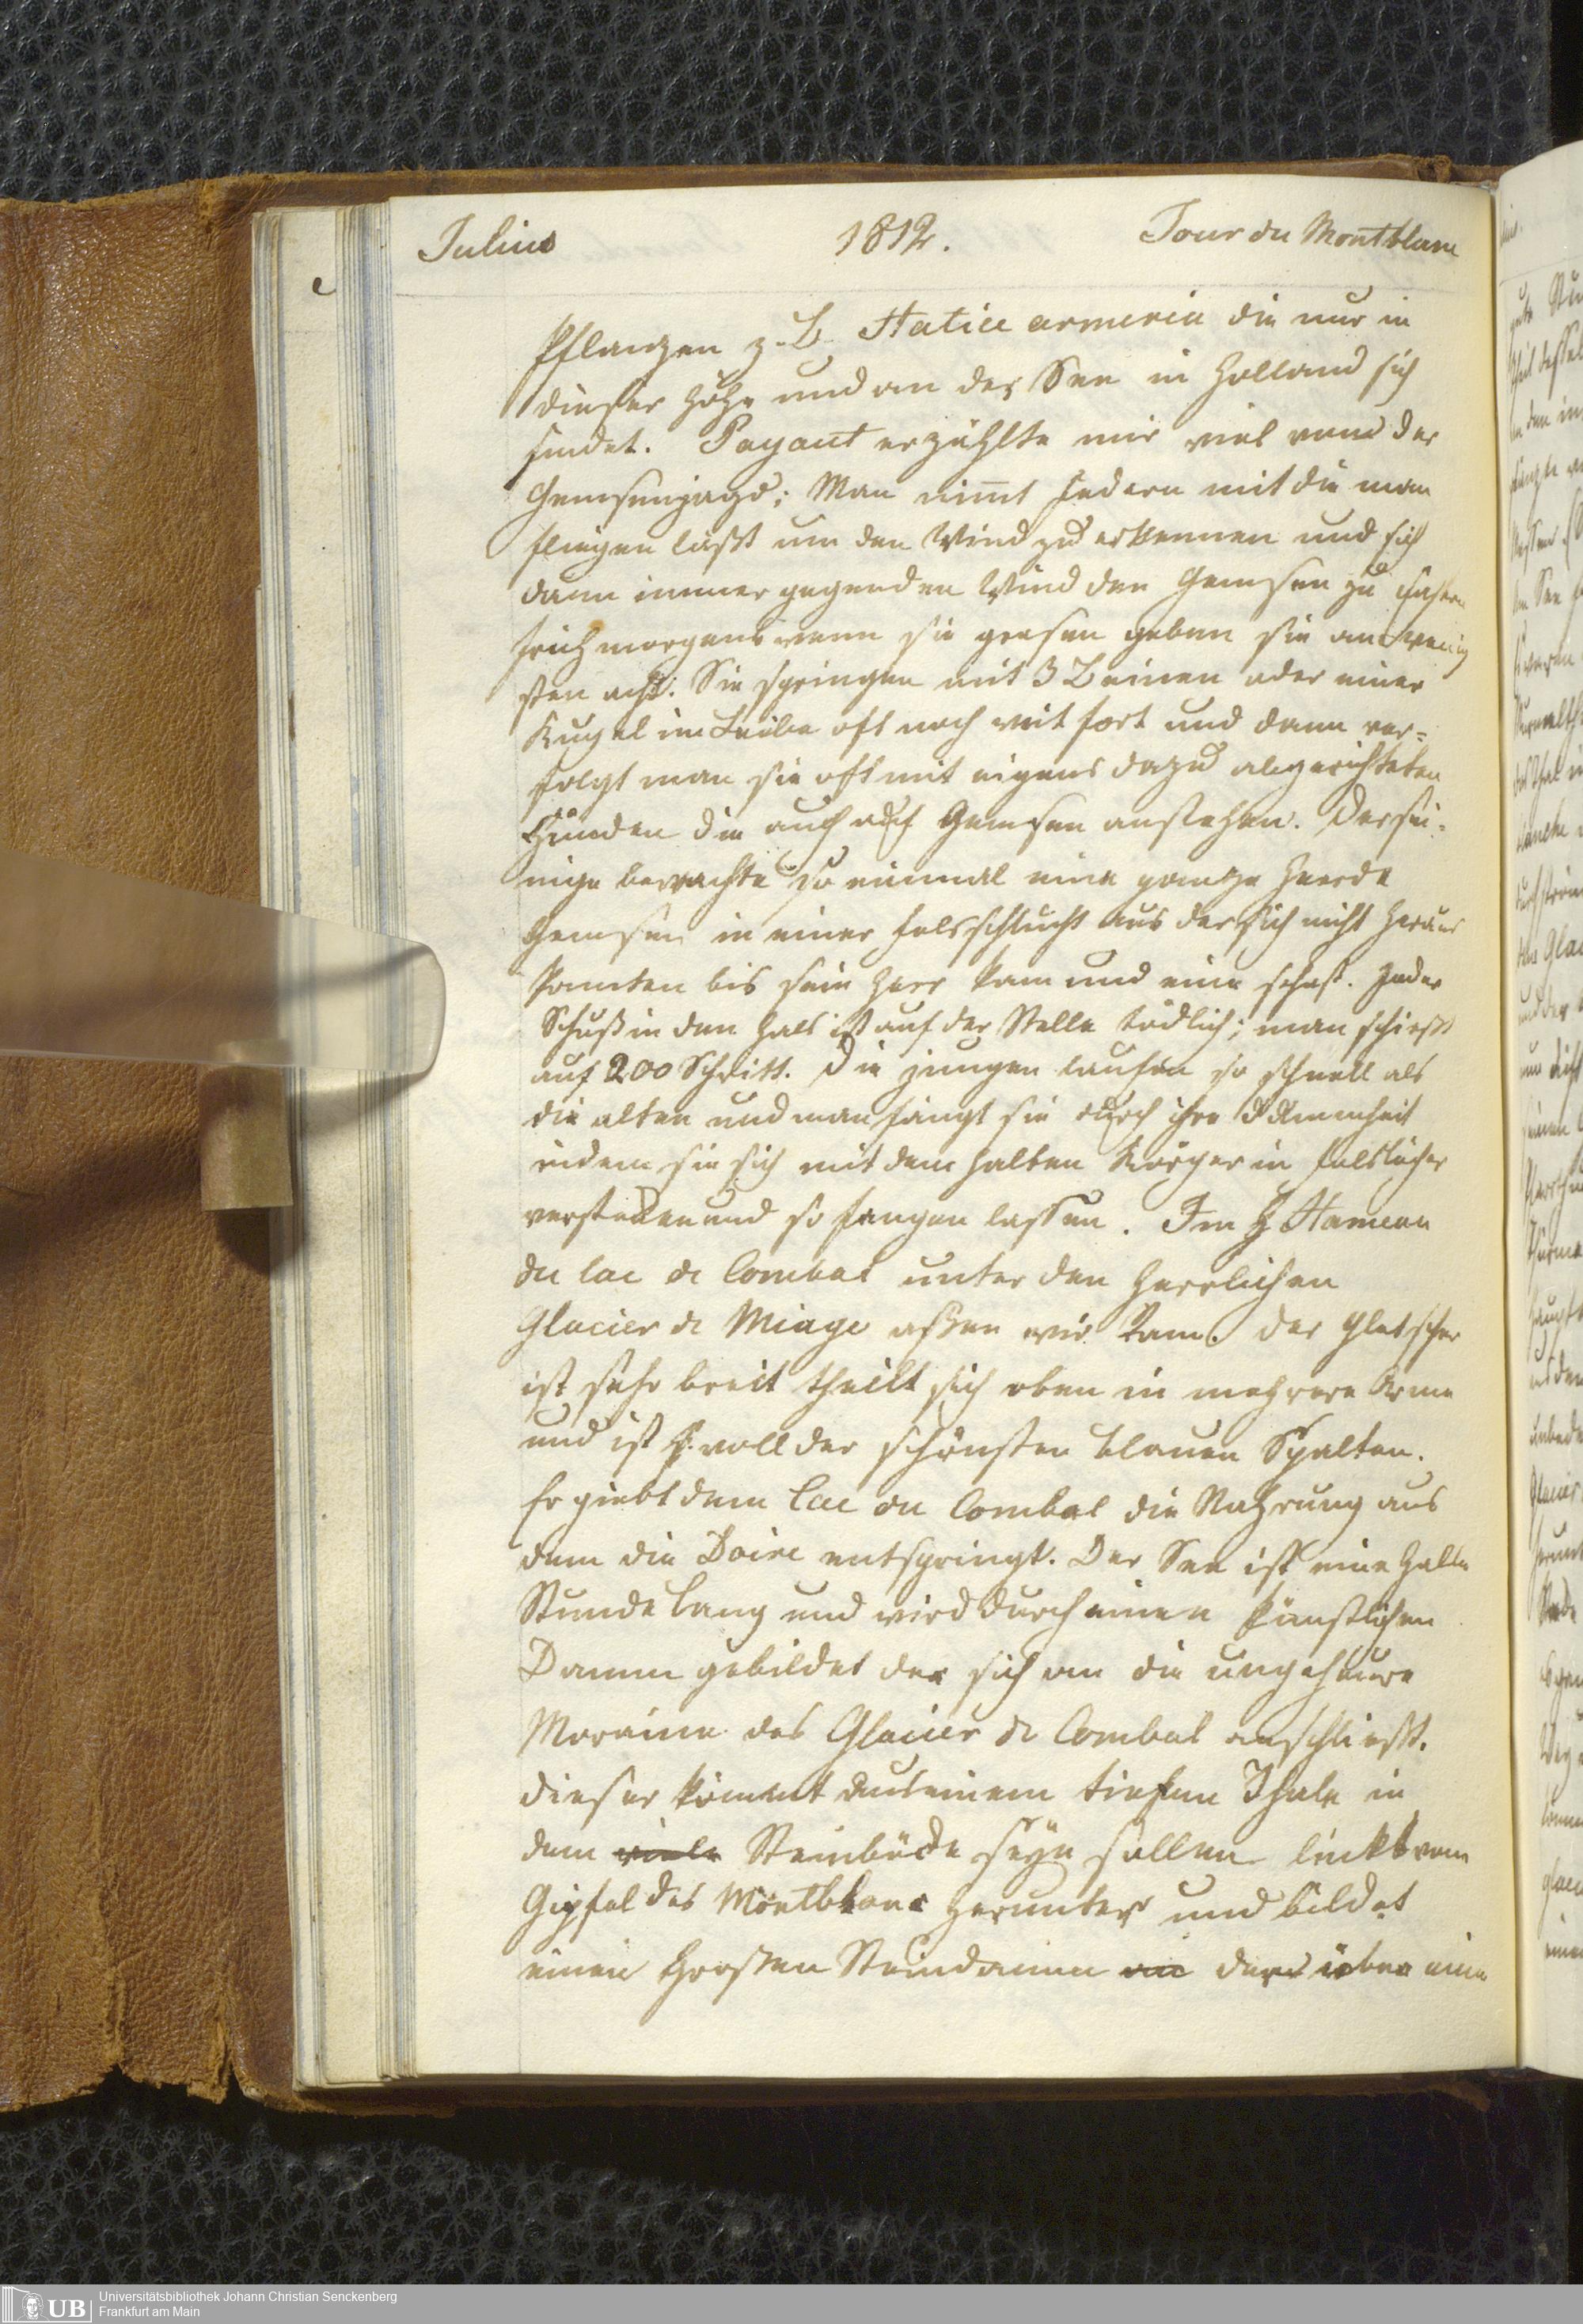 Julius 1812. Tour du Montblanc
Pflanzen z. B. Statice armeria die nur in
dieser Höhe und an der See in Holland sich
findet. Payant erzählte mir viel von der
Gemsenjagd: Man nim̄t Federn mit die man
fliegen lässt um den Wind zu erkennen und sich
dann immer gegen den Wind den Gemsen zu
früh morgens wenn sie grasen geben sie am wenig
sten acht. Sie springen mit 3 Beinen oder einer
Kugel im Leibe oft noch weit fort und dann ver=
folgt man sie oft mit eigens dazu abgerichteten
Hunden die auch auf Gemsen anstehen. Der sei=
nige bewachte so einmal eine ganze Heerde
Gemsen in einer Felsschlucht aus der sich nicht heraus
konnten bis sein Herr kam und eine schoß. Jeder
Schuß in den Hals ist auf der Stelle tödlich; man schießt
auf 200 Schritt. Die jungen laufen so schnell als
die alten und man fängt sie durch ihre Dummheit
indem sie sich mit dem halben Körper in Felslöcher
verstecken und so fangen lassen. Im Hameau
du lac de Combal unter den herrlichen
Glacier de Miage aßen wir Ram. Der Gletscher
ist sehr breit theilt sich oben in mehrere Arme
und ist voll der schönsten blauen Spalten.
Er giebt dem Lac du Combal die Nahrung aus
dem die Doire entspringt. Der See ist eine halbe
Stunde lang und wird durch einen künstlichen
Damm gebildet der sich an die ungeheure
Moraine des Glacier de Combal anschließt.
Dieser kömmt aus einem tiefen Thale in
dem viele Steinböcke seyn sollen links vom
Gipfel des Montblanc herunter und bildet
einen großen Steindamm der über eine
Universitätsbibliothek Johann Christian Senckenberg
UB Frankfurt am Main